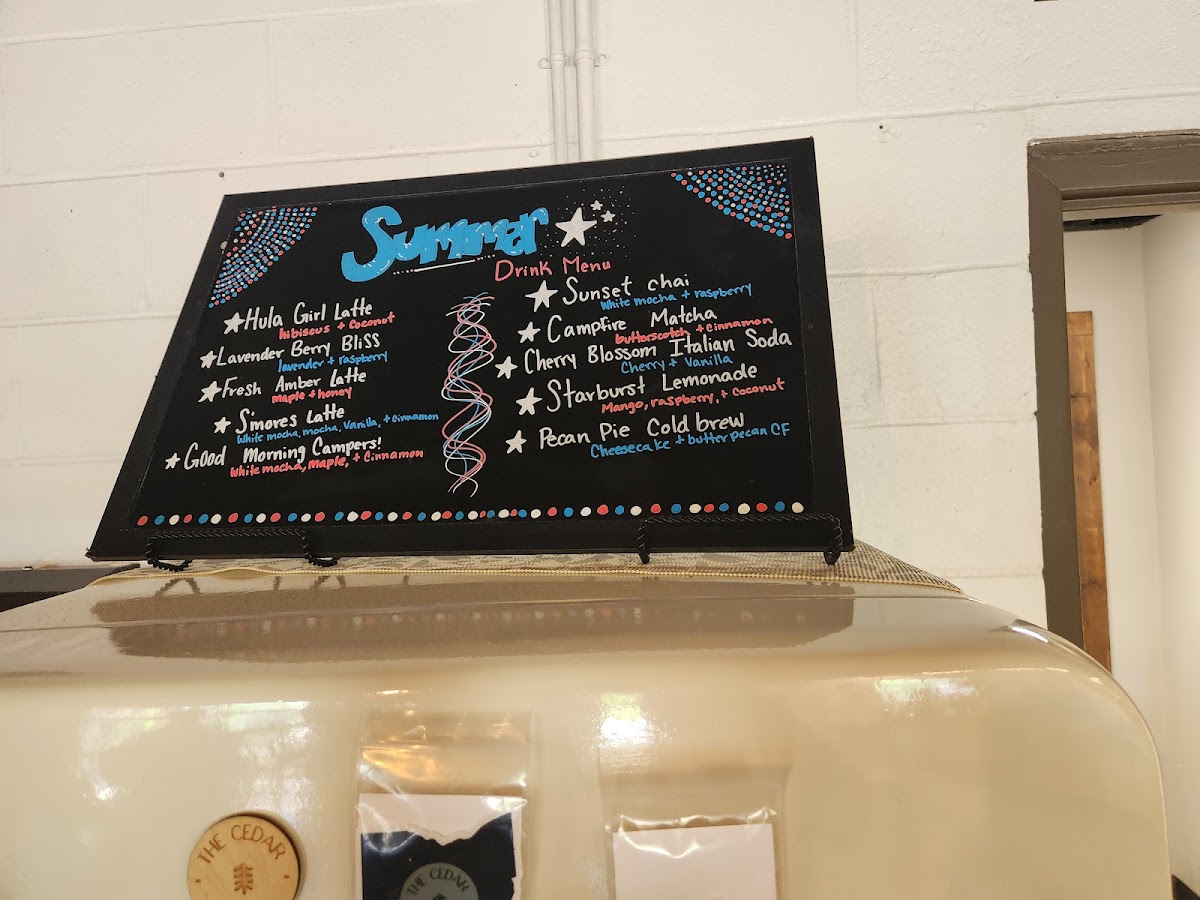 Summer
Drink Menu
Hula Girl Latte
hibiscus + coconut
Lavender Berry Bliss
lavender + raspberry
Fresh Amber Latte
maple + honey
S'mores Latte
White mocha, mocha, vanilla, + cinnamon
Good Morning Campers!
White mocha, maple, + cinnamon
Sunset chai
White mocha + raspberry
Campfire Matcha
butterscotch + cinnamon
Cherry Blossom Italian Soda
Cherry + Vanilla
Starburst Lemonade
Mango, raspberry, + coconut
Pecan Pie Cold brew
Cheesecake + butter pecan CF
THE CEDAR
THE CEDAR